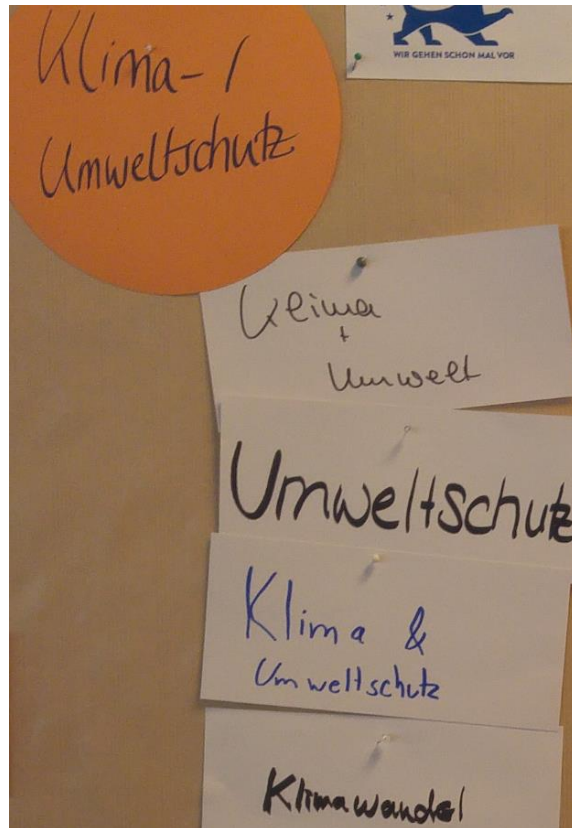 Klima- /
Umweltschutz
WIR GEHEN SCHON MAL VOR
Klima
+
Umwelt
Umweltschutz
Klima &
Umweltschutz
Klimawandel